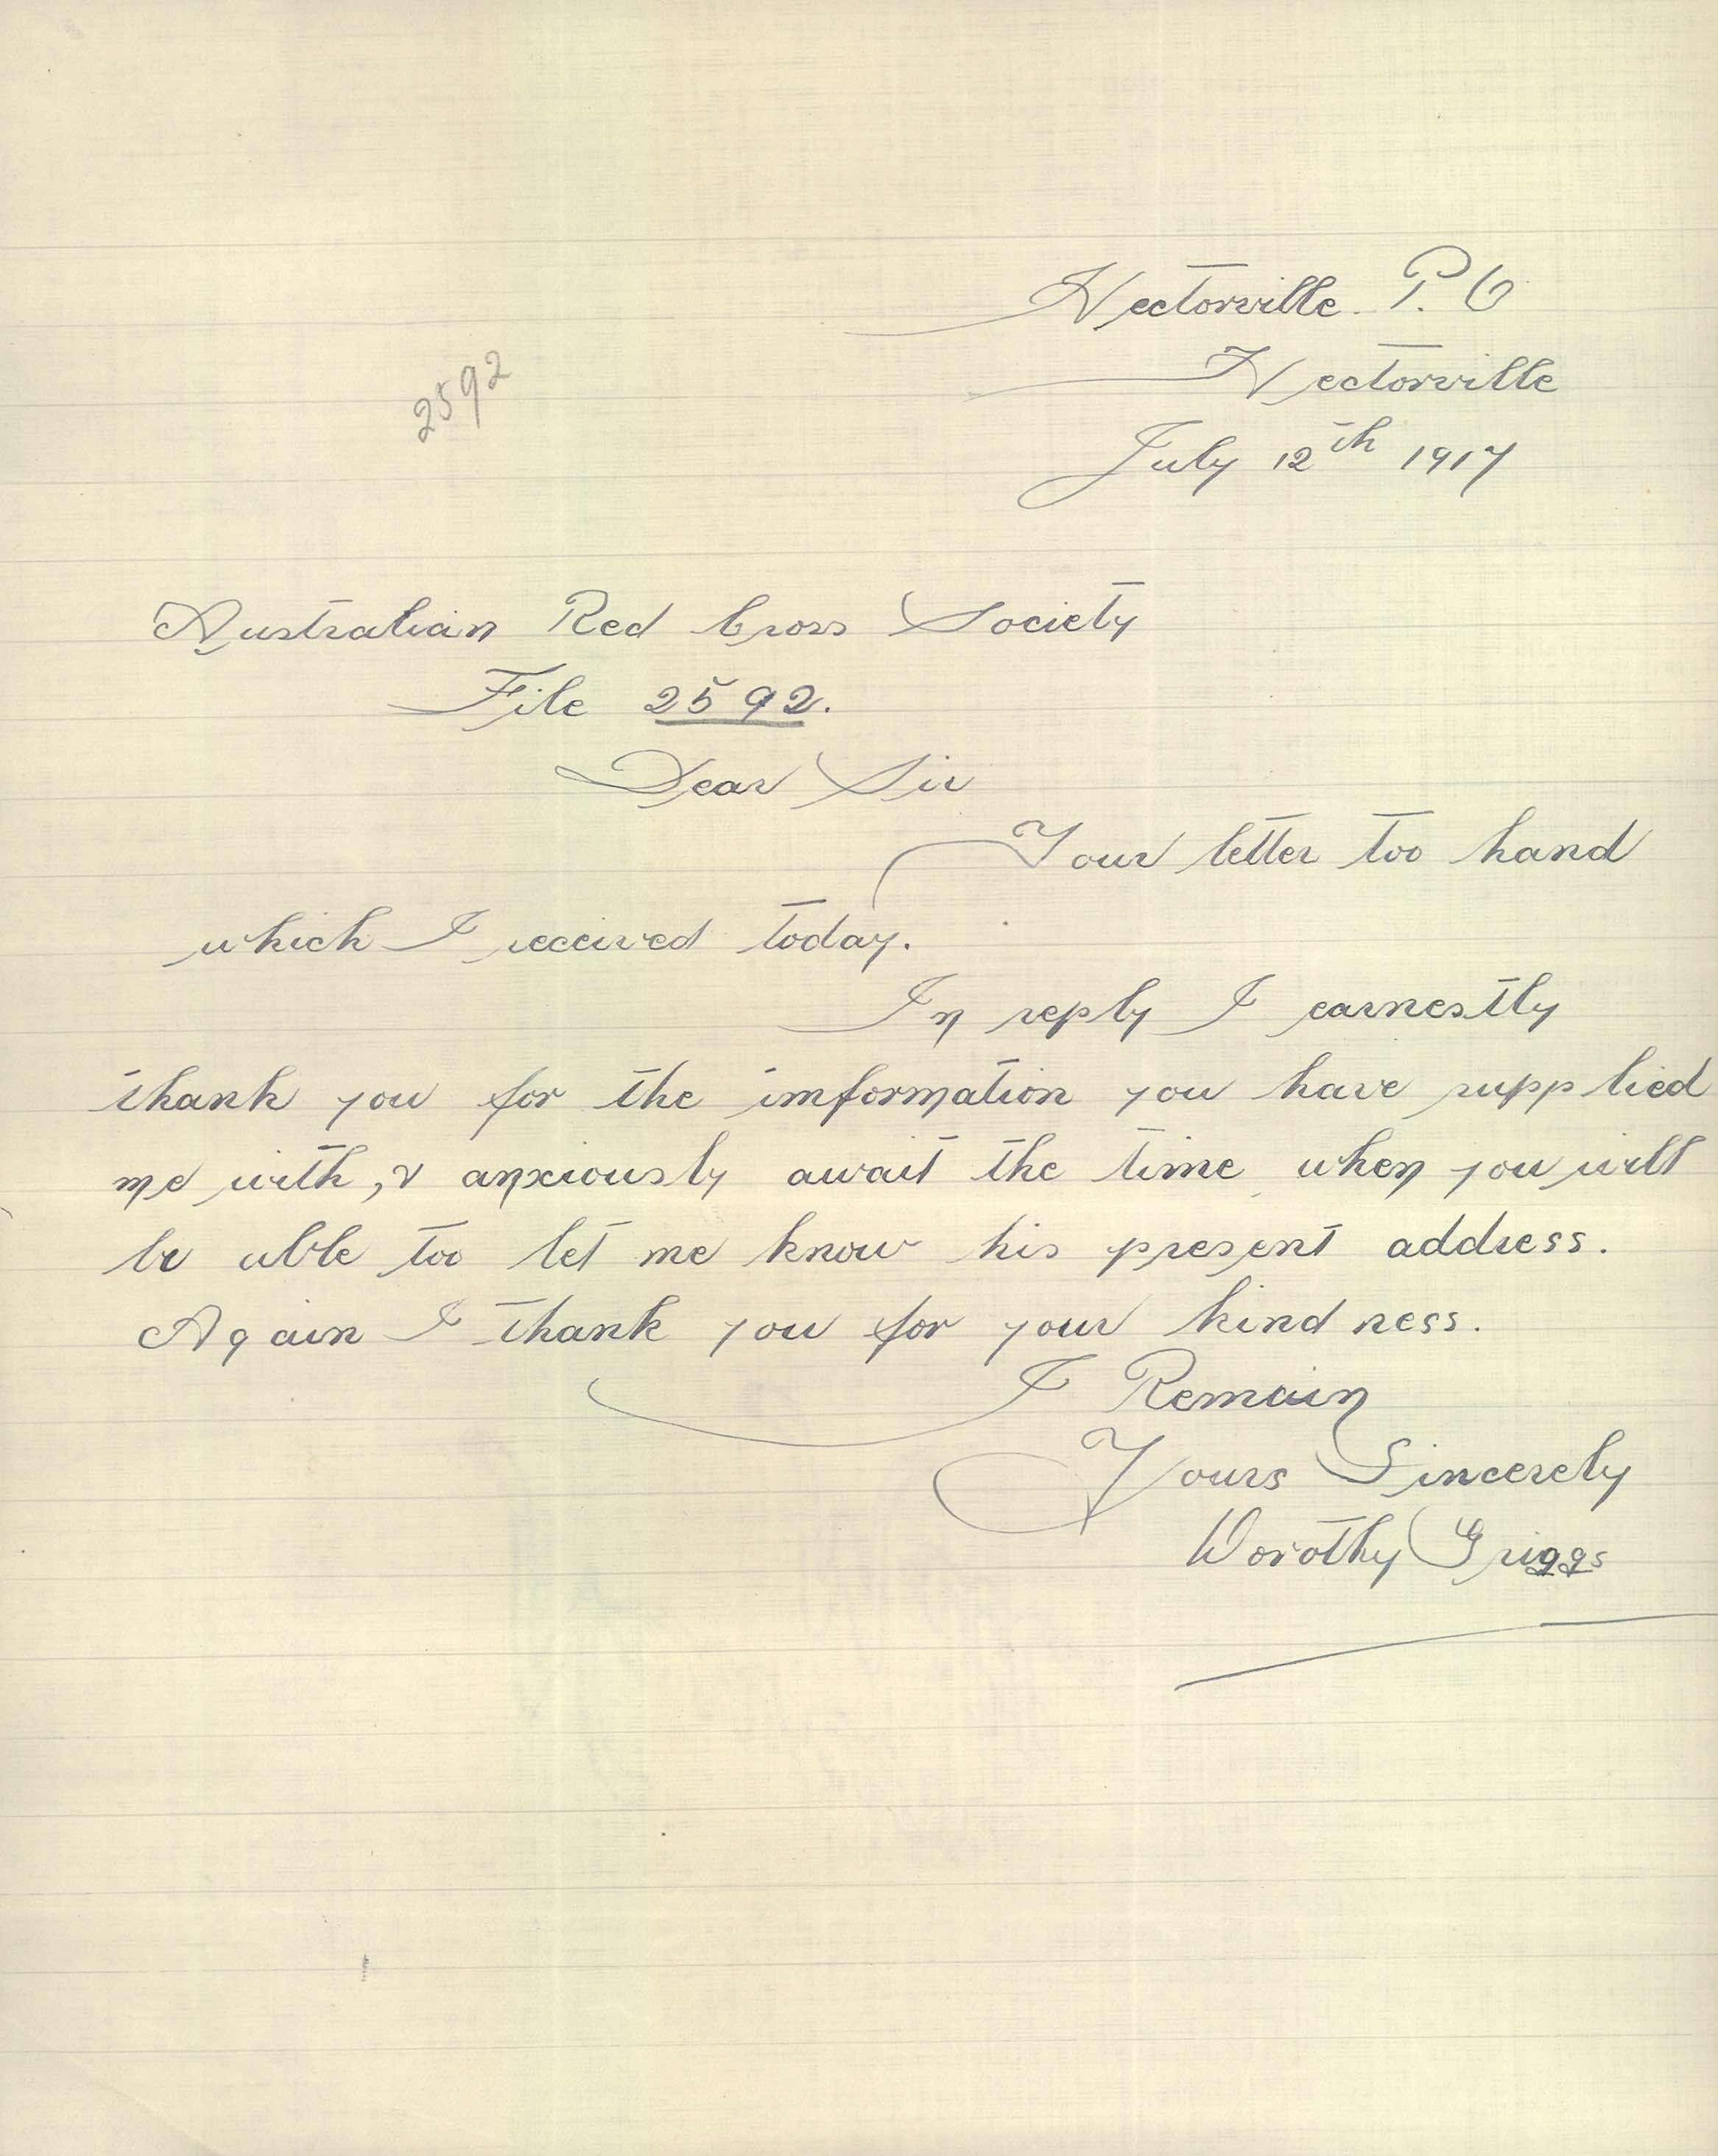 Hectorville P. O
Hectorville
2592
July 12th 1917
Australian Red Cross Society
File 2592.
Dear Sir
Your letter too hand
which I received today.
In reply I earnestly
thank you for the imformation you have supplied
me with, & anxiously await the time when you will
be able too let me know his present address.
Again I thank you for your kindness.
I Remain
Yours Sincerely
Dorothy Griggs